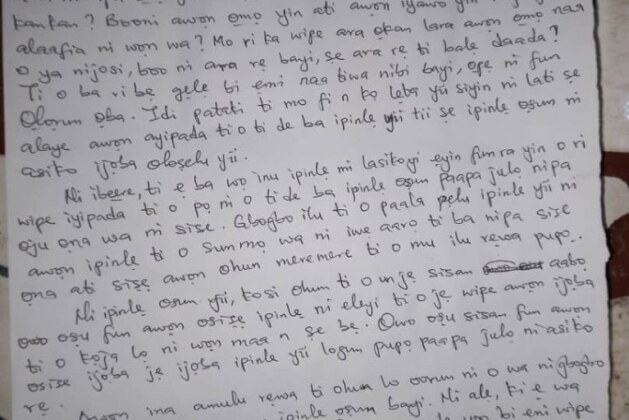 kankan? Booni awọn ọmọ yin ati awọn iyawo yin
alaafia ni won wa? Mo ri ka wipe ara ọkan lara awọn ọmọ naa
o ya nijosi, boo ni ara rẹ bayi, se ara re ti balẹ daada?
Ti o ba ri bẹ gẹlẹ bi emi naa tiwa nibi bayi, ọpẹ ni fun
Ọlọrun ọba. Idi pataki ti mo fi n kọ lẹta yii siyin ni lati se
alaye awọn ayipada ti o ti de ba ipinlẹ yii tii se ipinlẹ ọsun ni
asiko ijọba oloselu yii.
Ni ibẹẹrẹ, ti ẹ ba wọ inu ipinlẹ mi lasikoyi ẹyin funra yin o ri
wipe iyipada ti o pọ ni o ti de ba ipinlẹ ọsun paapa julọ nipa
oju ọna wa ni sise. Gbogbo ilu ti o paala pẹlu ipinlẹ yii ni
awọn ipinlẹ ti o sunmọ wa ni iwe aarọ ti ba nipa sise
ọna ati sisẹ awọn ohun meremere ti o mu ilu rẹwa pupọ.
Ni ipinlẹ ọsun yii, kosi ohun ti o unjẹ sisan aabọ
owo osu fun awọn osisẹ ipinlẹ ni eleyi ti o jẹ wipe awọn ijọba
ti o kọja lọ ni won maa n se bẹ. Owo osu sisan fun awọn
osisẹ ijọba jẹ ijọba ipinlẹ yii logun pupọ paapa julọ ni asiko
rẹ.
ina amulu rẹwa ti ohun lo oorun ni o wa ni gbogbo
ipinlẹ ọsun bayi. Ni alẹ, ki ẹ wa
bi eni wipe